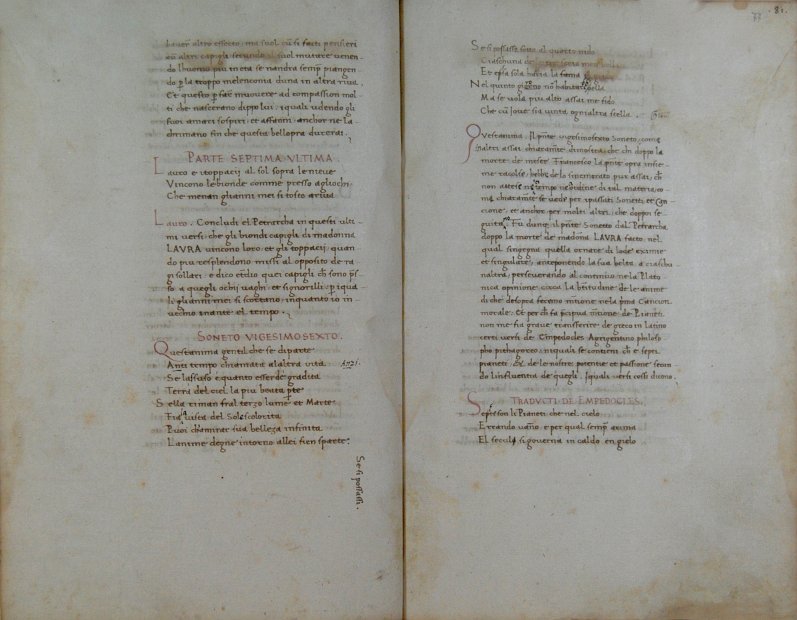 haver altro effecto, ma suol cū si facti pensieri
cū altri capigli secundo si suol mutare venen-
do l'huomo piu ī neta se nandra semp̄ piangen
do p̄ la troppo melenconia duna in altra riva.
Et questo p̄ far muovere ad compassion mol-
ti che nasceranno dippo lui, i quali udendo gli
suoi amari sospiri, et affanni, anchor ne la-
chrimano fin che questa bellopra durerai.
PARTE SEPTIMA VLTIMA
Lauro e i toppacij al sol sopra le nieve
Vincono le bionde comme presso agliochi
Che menan glianni mei si tosto ariva.
Lauro. Concludi el Petrarcha in questi ulti
mi versi che gli biondi capigli di madonna
LAVRA vincono loro et gli toppacij quan
do piu resplendono missi al opposito de ra
gi sollari e dico etdio quei capigli ch̄ sono p̄s
so a quegli ochij vaghi et signorilli p̄ i qua
li gli anni mei si scortano inquanto io in-
vechio inante el tempo.
SONETO VIGESIMOSEXTO.
Questanima gentil che se diparte
Anti tempo chiamata alaltra vita Anzi.
Se lassuso e quanto esser de gradita
Terra del ciel la piu beata p̄te
Sella riman fral terzo lume et Marte
Fia la vista del Sole scolorita
Puoi chamirar sua belleza infinita
Lanime degne intorno allei fien sparte.
Se si possassi.
77 81
Se si possasse sotto al quarto nido
Ciaschuna de
Et epsa sola havria la fama
Nel quinto gir̄eno nō habitarebella
Ma se vola piu alto assai me fido
Che cū Iove sia vinta ogni altra stella.
Questanima. Il p̄nte vigesimosexto Soneto, come
glialtri assai chiaramēte dimostra che ch̄ doppo la
morte de meser Francesco la p̄nte opra insie-
me racolse hebbe de lo inconsiderato pur assai, ch̄
non attese ne tempo ne ordine di tal materia co-
me chiaramēte se vede per i passati Sonetti et Can-
cione, et anchor per molti altri, che doppoi se-
guita. Fu dunq̄ il p̄nte Sonetto dal Petrarcha
doppo la morte de madōna LAVRA facto, nel
qual singegna quella ornare di lode eximie
et singulare, anteponendo la sua belta a ciaschu
naltra, perseverando al continuo nella Plato
nica opinione, circa la beatitudine de le anime
di che desopra fecemo mētione nela prima Cancion
morale. Et per ch̄ fa p̄cipua mētione de Pianeti
non me sia grave transferire de greco in latino
certi versi de Empedocles Agrigentino philoso
pho pithagoreo, ni quali se contien ch̄ e septe
pianeti de le nostre potentie et passione secun
do linfluentia de quegli. I quali versi cossi dicono.
TRADVCTI DE EMPEDOCLES.
Septe son li Pianeti che nel cielo
Errando vano, e per qual semp̄ axuna
El seculo si governa in caldo en gielo